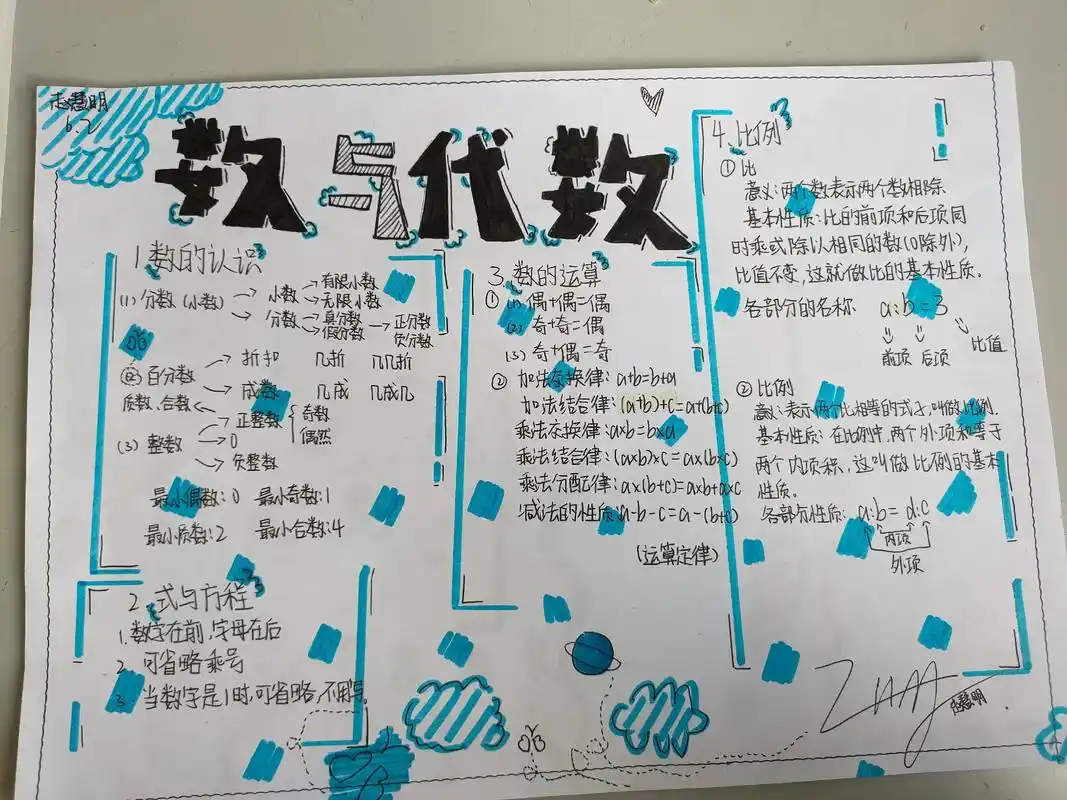 赵慧明
6.2
数与代数
1 数的认识
(1) 分数 (小数) → 小数 → 有限小数
→ 无限小数
→ 分数 → 真分数
→ 假分数 → 正分数
负分数
② 百分数 → 折扣 几折 几几折
→ 成数 几成 几成几
质数、合数 ← 正整数 { 奇数
偶然
(3) 整数 → 0
→ 负整数
最小偶数: 0 最小奇数: 1
最小质数: 2 最小合数: 4
2 式与方程
1. 数字在前,字母在后
2. 可省略乘号
3. 当数字是1时可省略,不用写.
3. 数的运算
① (1) 偶+偶=偶
(2) 奇+奇=偶
(3) 奇+偶=奇
② 加法交换律: a+b=b+a
加法结合律: (a+b)+c=a+(b+c)
乘法交换律: a×b=b×a
乘法结合律: (a×b)×c=a×(b×c)
乘法分配律: a×(b+c)=a×b+a×c
减法的性质: a-b-c=a-(b+c)
(运算定律)
4. 比例
① 比
意义: 两个数表示两个数相除
基本性质: 比的前项和后项同
时乘或除以相同的数(0除外),
比值不变, 这就做比的基本性质。
各部分的名称 a:b=3
前项 后项 比值
② 比例
意义: 表示两个比相等的式子,叫做比例.
基本性质: 在比例中,两个外项积等于
两个内项积, 这叫做比例的基本
性质。
各部分性质: a:b=d:c
内项
外项
赵慧明